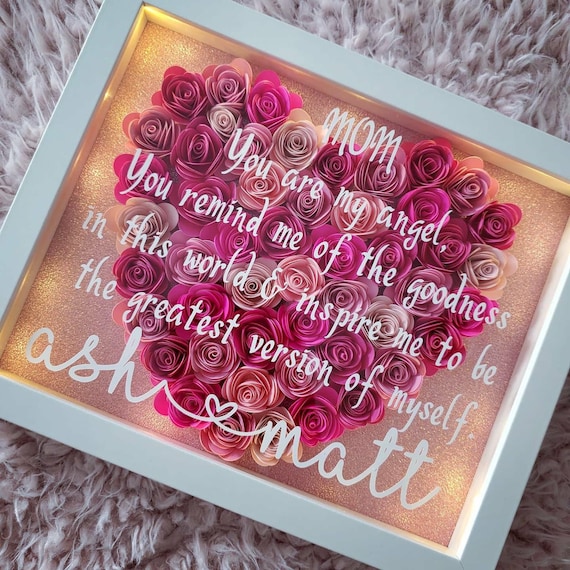 MOM
You are my angel.
You remind me of the goodness
in this world & inspire me to be
the greatest version of myself.
ash matt